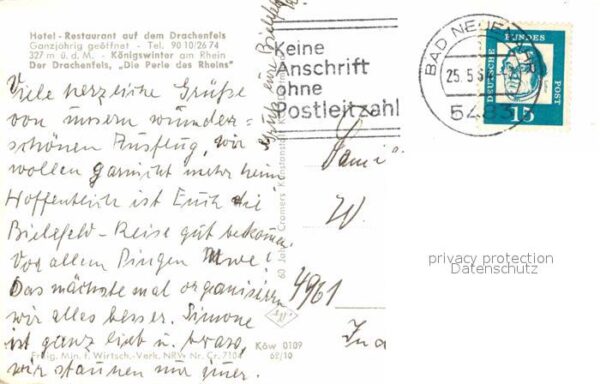 Hotel - Restaurant auf dem Drachenfels
Ganzjährig geöffnet - Tel. 90 10/26 74
327 m ü. d. M. - Königswinter am Rhein
Der Drachenfels, „Die Perle des Rheins"
Viele herzliche Grüße
von unserm wunder=
schönen Ausflug, wir
wollen garnicht mehr heim
Hoffentlich ist Euch die
Bielefeld-Reise gut bekomm.
Vor allem Uwe!
Das nächste mal organisieren
wir alles besser. Simone
ist ganz lieb u. brav,
wir staunen nur immer.
Frtlg. Min. f. Wirtsch.-Verk. NRW Nr. Cr. 7104
Köw 0109
62/10
60 Jahre Cramers Kunstanstalt
Grüße
Keine
Anschrift
ohne
Postleitzahl
BAD NEUEN
25.5.6
5483
DEUTSCHE BUNDES POST
15
Fami
W
4961
In
privacy protection
Datenschutz